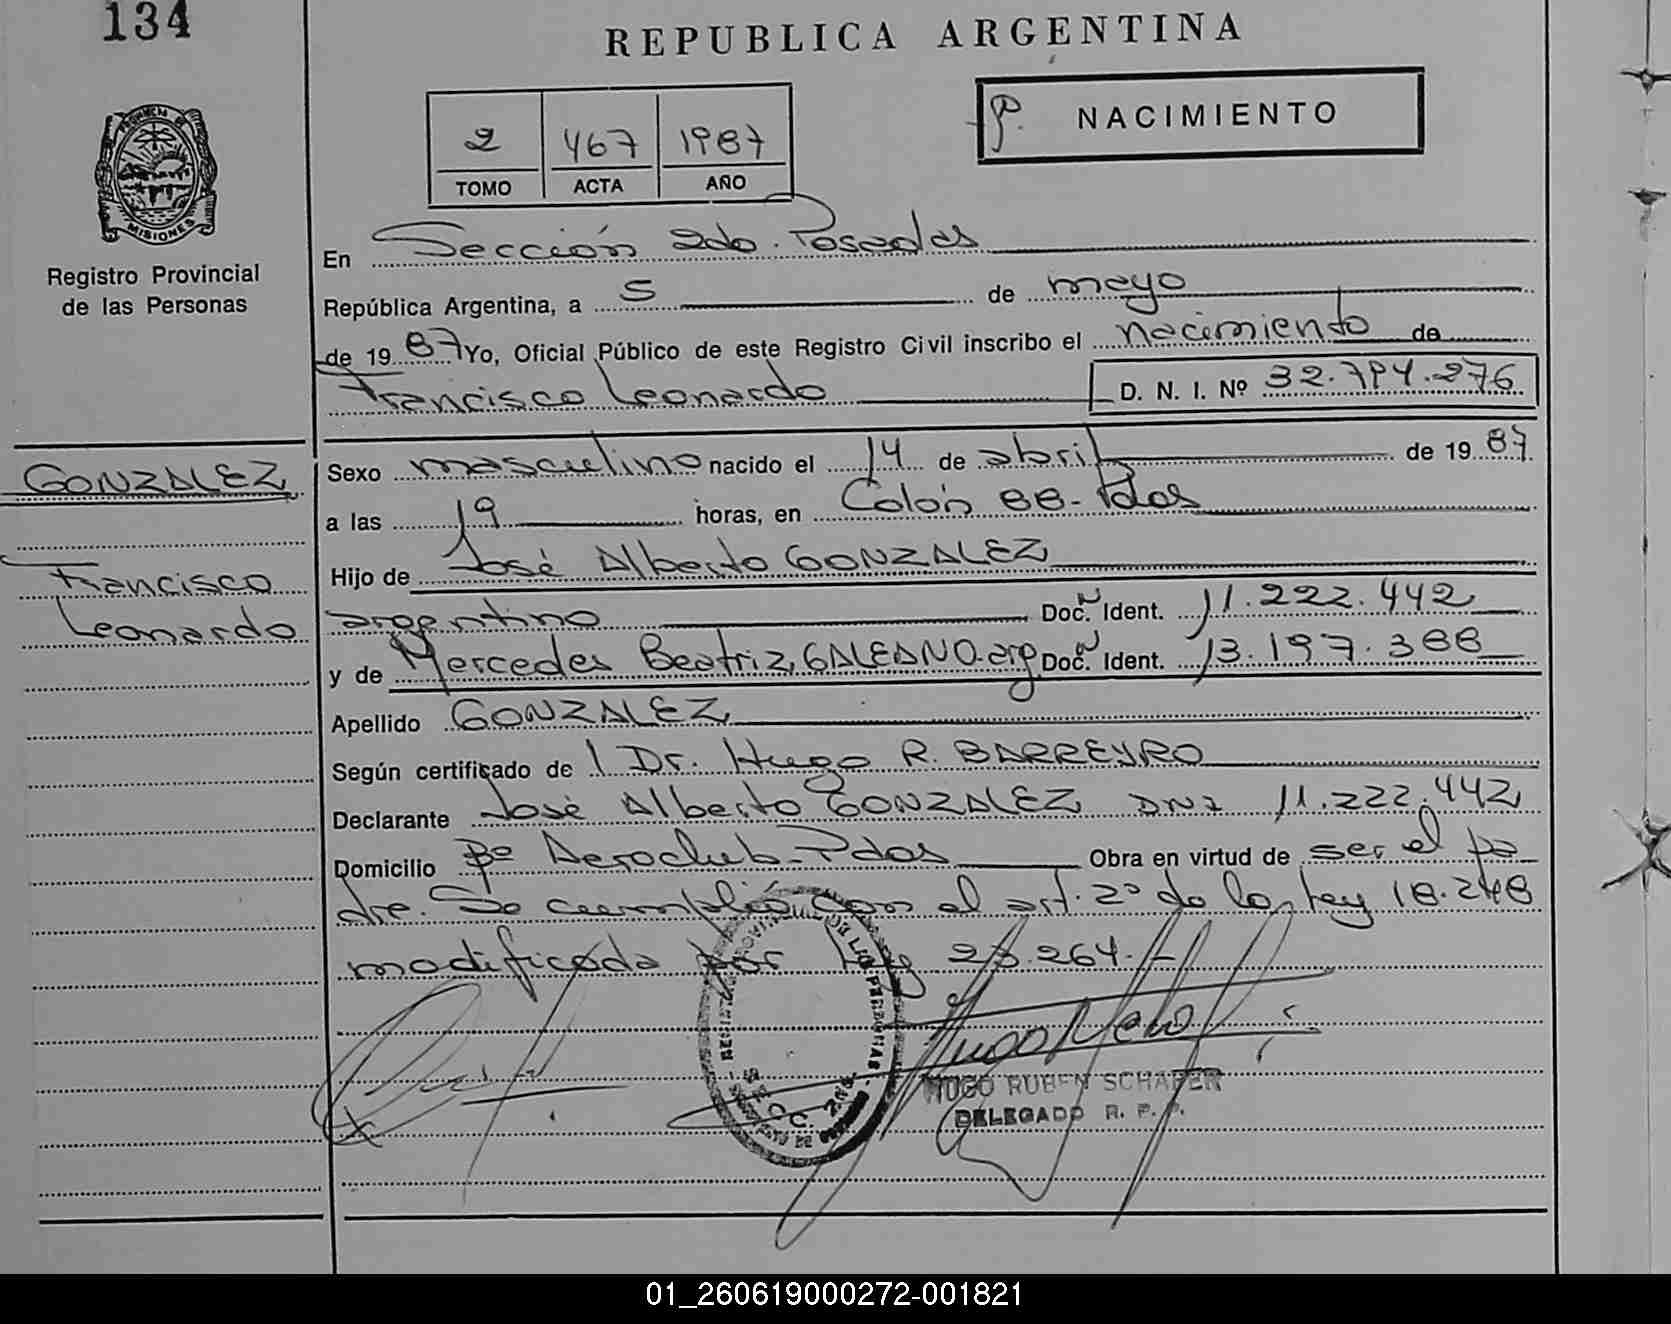 134
REPUBLICA ARGENTINA
2 467 1987
TOMO ACTA AÑO
NACIMIENTO
MISIONES
Registro Provincial
de las Personas
En Sección 2da. Posadas
República Argentina, a 5 de mayo
de 1987 Yo, Oficial Público de este Registro Civil inscribo el nacimiento de
Francisco Leonardo D. N. I. Nº 32.794.276
GONZALEZ
Francisco
Leonardo
Sexo masculino nacido el 14 de abril de 1987
a las 19 horas, en Colón 88-Pdas
Hijo de José Alberto GONZALEZ
argentino Doc. Ident. 11.222.442
y de Mercedes Beatriz GALEANO.arg Doc. Ident. 13.197.388
Apellido GONZALEZ
Según certificado de l Dr. Hugo R. BARREYRO
Declarante José Alberto GONZALEZ DNI 11.222.442
Domicilio Bº Aeroclub-Pdas Obra en virtud de ser el pa
dre. Se cumplió con el art. 2º de la Ley 18.248
modificada por Ley 23.264.-
SECC. 2da
HUGO RUBEN SCHAFER
DELEGADO R. P. P.
01_260619000272-001821